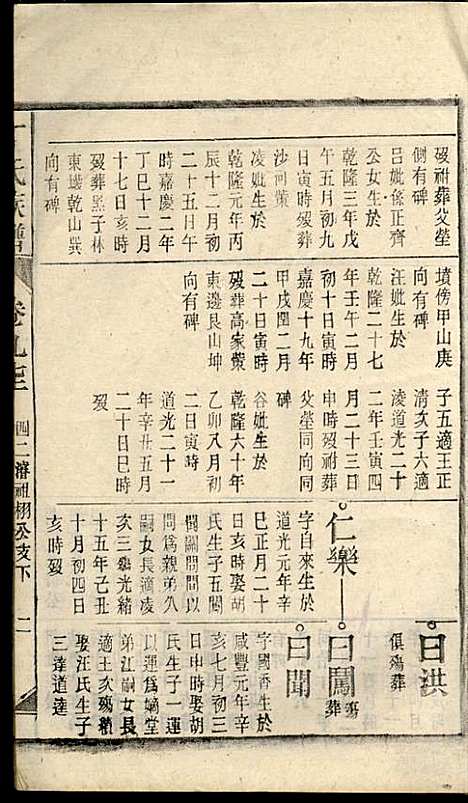 歿祔葬父塋
側有碑
呂妣條正齊
公女生於
乾隆三年戊
午五月初九
日寅時歿葬
沙河策
凌妣生於
乾隆元年丙
辰十二月初
二十五日午
時嘉慶二年
丁巳十二月
十七日亥時
歿葬黑子林
東壕乾山巽
向有碑
墳傍甲山庚
向有碑
汪妣生於
乾隆二十七
年壬午二月
初十日寅時
嘉慶十九年
甲戌閏二月
二十日寅時
歿葬高家蕒
東邊艮山坤
向有碑
子五適王正
清亥子六適
淩道光二十
二年壬寅四
月二十三日
申時歿祔葬
父塋同向同
碑
谷妣生於
乾隆六十年
乙卯八月初
二日寅時
道光二十一
年辛丑五月
二十日巳時
歿
仁樂
字自來生於
道光元年辛
巳正月二十
日亥時娶胡
氏生子五曰
闖閙聞閒以
問爲親弟久
嗣女長適凌
亥三殤光緒
十五年己丑
十月初四日
亥時歿
曰洪
俱殤葬
曰鬮
殤葬
曰聞
字國香生於
咸豐元年辛
亥七月初三
日申時娶胡
氏生子一運
以運爲嫡堂
弟江嗣女長
適王亥殤續
娶汪氏生子
三達道達
氏族譜
卷九
四二濬祖栩公支下
二